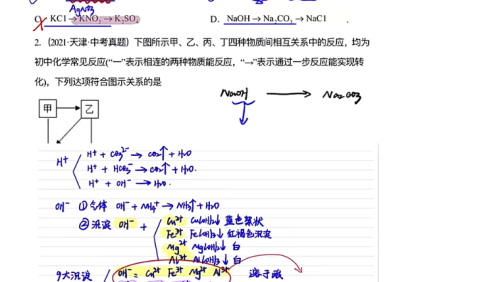 AgNO₃
C. KCl → KNO₃ → K₂SO₄ D. NaOH → Na₂CO₃ → NaCl .
2.（2021·天津·中考真题）下图所示甲、乙、丙、丁四种物质间相互关系中的反应，均为
初中化学常见反应(“一”表示相连的两种物质能反应，“→”表示通过一步反应能实现转
化)，下列达项符合图示关系的是
NaOH → Na₂CO₃
↓
甲 → 乙
H⁺
H⁺ + CO₃²⁻ → CO₂↑ + H₂O
H⁺ + HCO₃⁻ → CO₂↑ + H₂O.
H⁺ + OH⁻ → H₂O.
OH⁻ ①气体 OH⁻ + NH₄⁺ → NH₃↑ + H₂O
②沉淀 OH⁻ +
Cu²⁺ Cu(OH)₂↓ 蓝色絮状
Fe³⁺ Fe(OH)₃↓ 红褐色沉淀
Mg²⁺ Mg(OH)₂↓ 白
Al³⁺ Al(OH)₃↓ 白
9大沉淀 OH⁻ = Cu²⁺ Fe³⁺ Mg²⁺ Al³⁺ 溶于酸